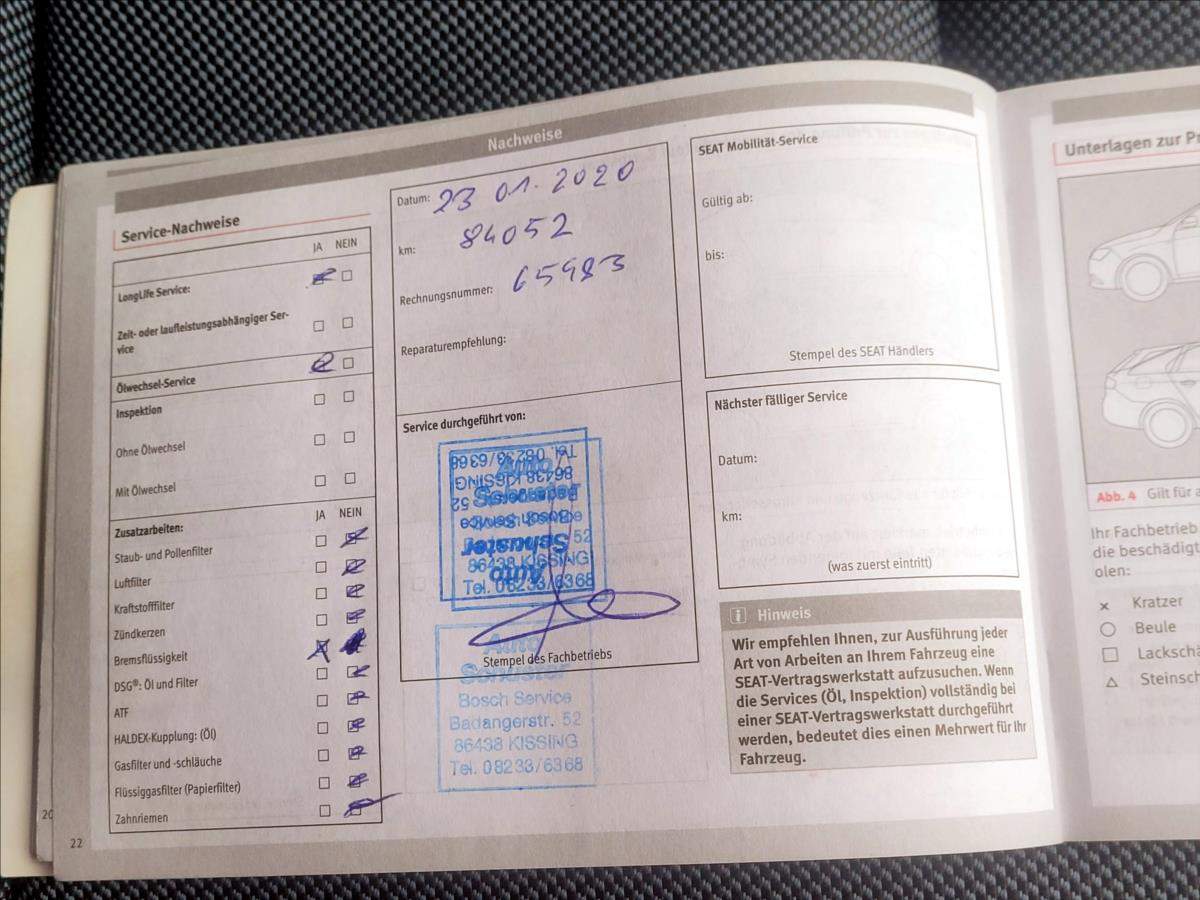 Nachweise
Service-Nachweise
JA NEIN
LongLife Service:
Zeit- oder laufleistungsabhängiger Ser-
vice
Ölwechsel-Service
Inspektion
Ohne Ölwechsel
Mit Ölwechsel
Zusatzarbeiten: JA NEIN
Staub- und Pollenfilter
Luftfilter
Kraftstofffilter
Zündkerzen
Bremsflüssigkeit
DSG®: Öl und Filter
ATF
HALDEX-Kupplung: (Öl)
Gasfilter und -schläuche
Flüssiggasfilter (Papierfilter)
Zahnriemen
22
20
Datum: 23 01. 2020
km: 84052
Rechnungsnummer: 65983
Reparaturempfehlung:
Service durchgeführt von:
Auto
Schuster
Bosch Service
Badangerstr. 52
86438 KISSING
Tel. 08233/6368
Auto
Schuster
Bosch Service
Badangerstr. 52
86438 KISSING
Tel. 08233/6368
Stempel des Fachbetriebs
Auto
Schuster
Bosch Service
Badangerstr. 52
86438 KISSING
Tel. 08233/6368
SEAT Mobilität-Service
Gültig ab:
bis:
Stempel des SEAT Händlers
Nächster fälliger Service
Datum:
km:
(was zuerst eintritt)
i Hinweis
Wir empfehlen Ihnen, zur Ausführung jeder
Art von Arbeiten an Ihrem Fahrzeug eine
SEAT-Vertragswerkstatt aufzusuchen. Wenn
die Services (Öl, Inspektion) vollständig bei
einer SEAT-Vertragswerkstatt durchgeführt
werden, bedeutet dies einen Mehrwert für Ihr
Fahrzeug.
Unterlagen zur
Abb. 4 Gilt für
Ihr Fachbetrieb
die beschädigt
olen:
Kratzer
Beule